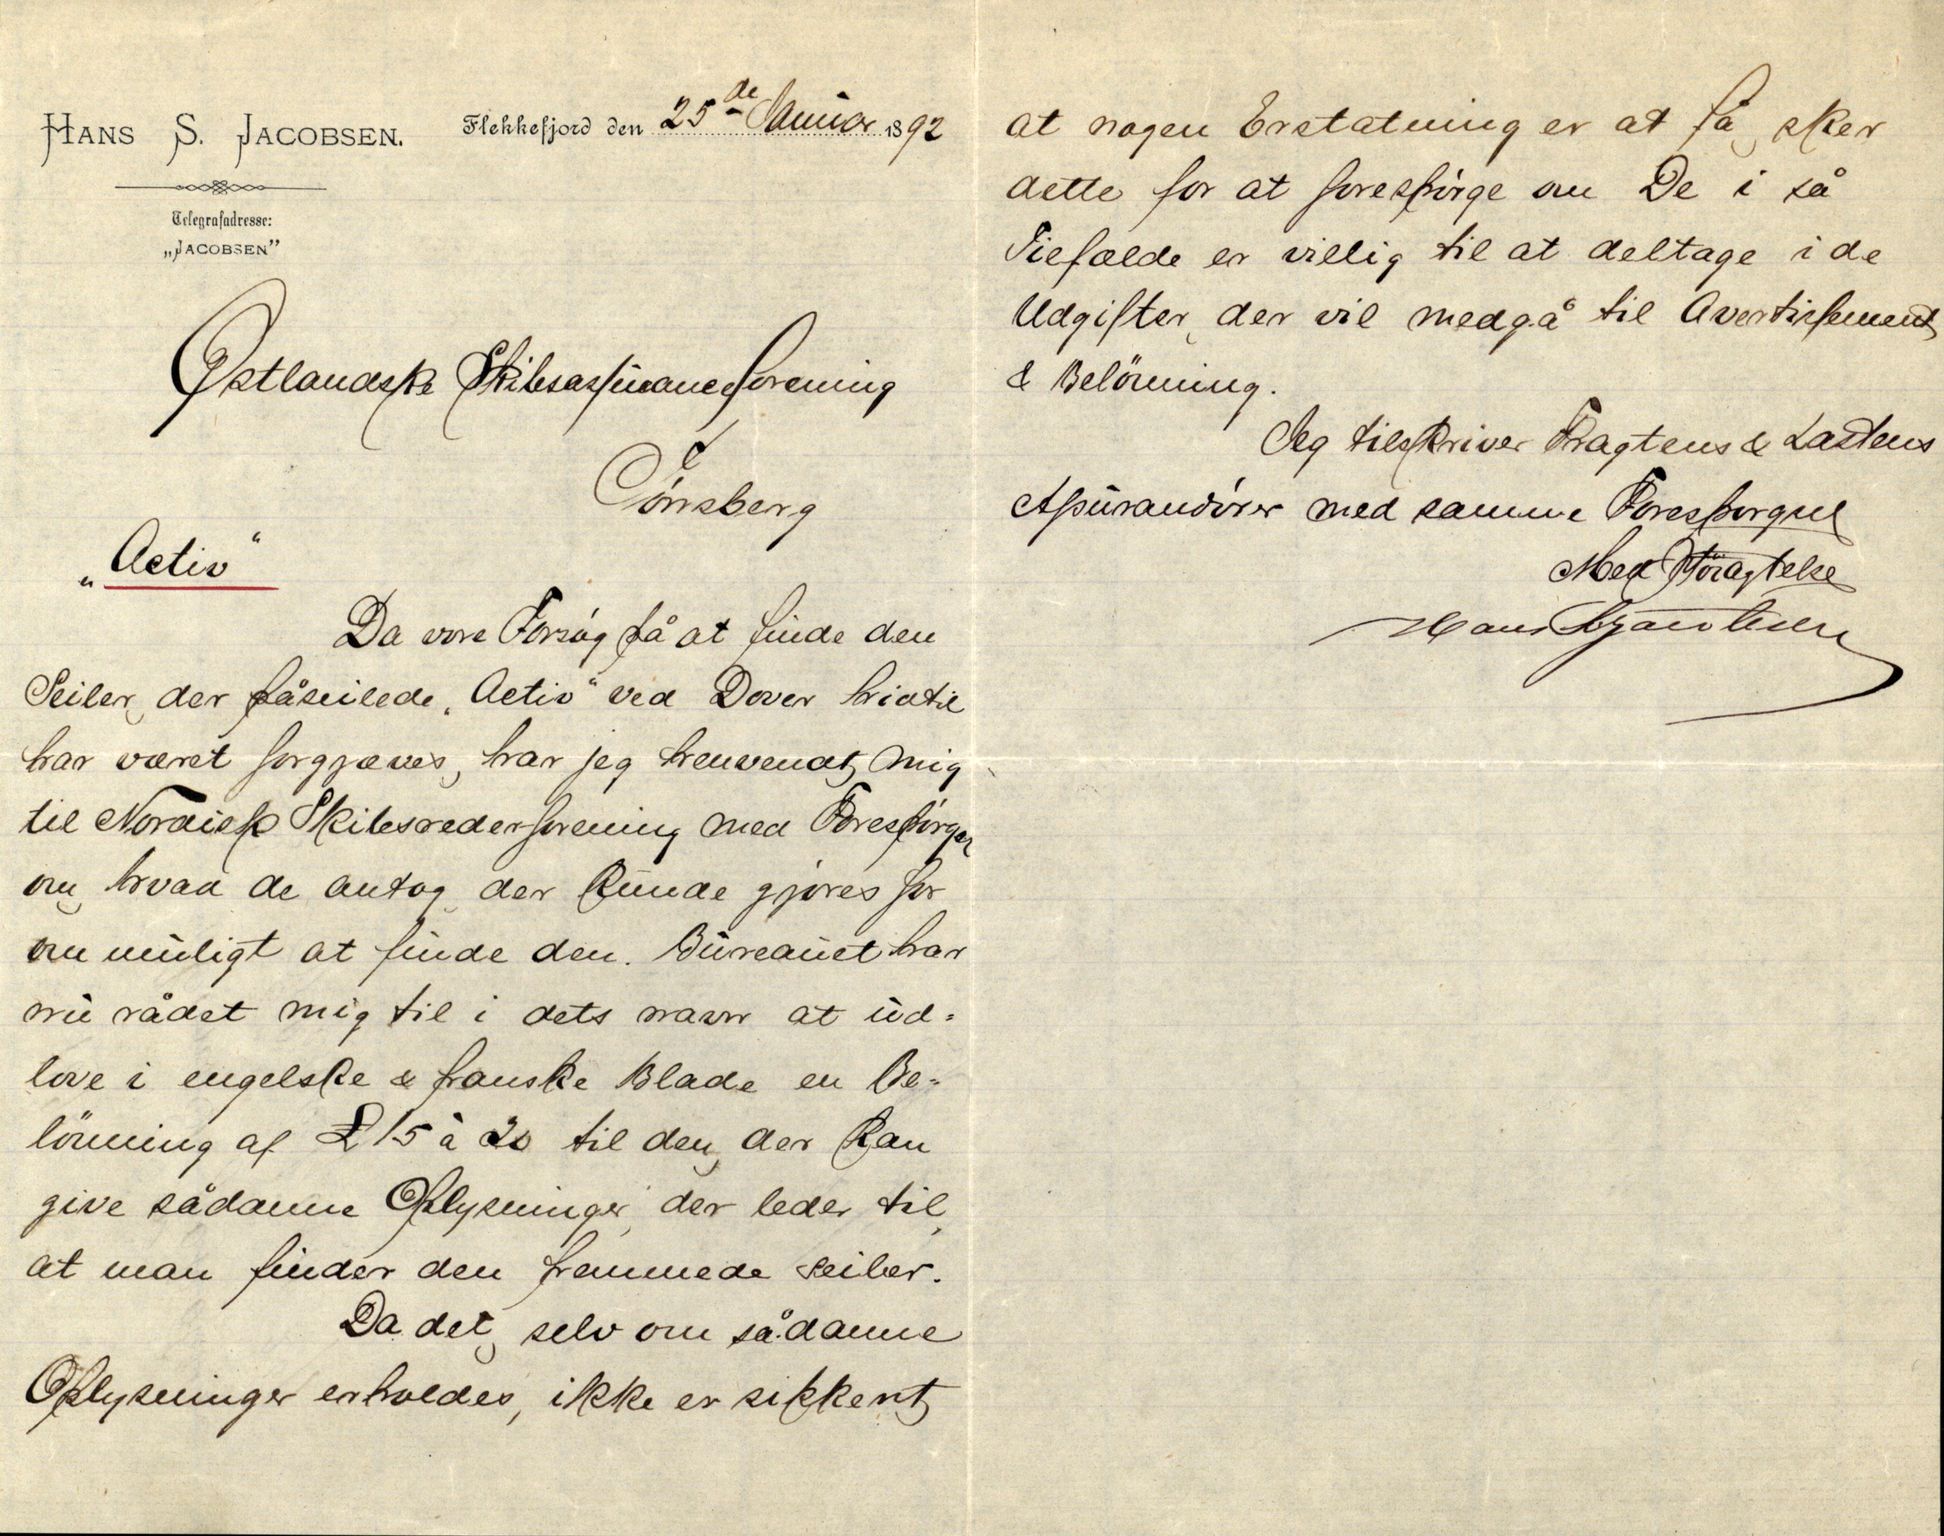 HANS S. JACOBSEN.
Flekkefjord den 25de Januar 1892
Telegrafadresse:
„JACOBSEN”
Østlandske Skibsassuranceforening
Tönsberg
„Activ“
Da vore Forsög på at finde den
Seiler, der påseilede „Activ“ ved Dover hidtil
har været forgjæves, har jeg henvendt mig
til Nordisk Skibsrederforening med Forespörgsel
om, hvad de antog, der kunde gjöres for
om muligt at finde den. Bureauet har
nu rådet mig til i dets navn at ud=
love i engelske & franske Blade en Be=
lönning af £ 15 à 20 til den, der kan
give sådanne Oplysninger, der leder til,
at man finder den fremmede Seiler.
Da det, selv om sådanne
Oplysninger erholdes, ikke er sikkert,
at nogen Erstatning er at få, sker
dette for at forespörge om De i så
Tilfælde er villig til at deltage i de
Udgifter, der vil medgå til Avertissement
& Belönning.
Jeg tilskriver Fragtens & Lastens
Assurandörer med samme Forespörgsel
Med Höiagtelse
Hans S Jacobsen